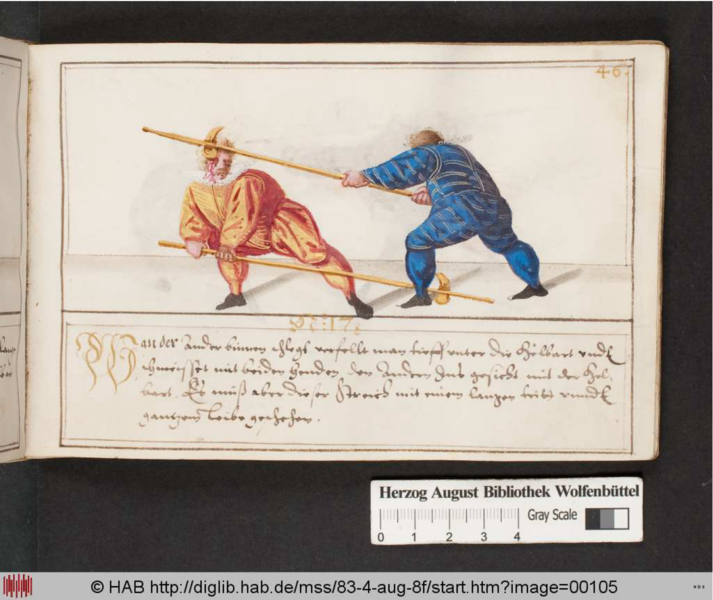 46
N: 17:
Wan der ander binnen schlegt verfellt man tieff unter die Helbart undt
schmeisset mit beiden henden den Andern Ins gesicht mit der Hel„
bart. Es muß aber dieser Streich mit einem langen tritt unndt
gantzem leibe geschehen.
Herzog August Bibliothek Wolfenbüttel
0 1 2 3 4 Gray Scale
© HAB http://diglib.hab.de/mss/83-4-aug-8f/start.htm?image=00105